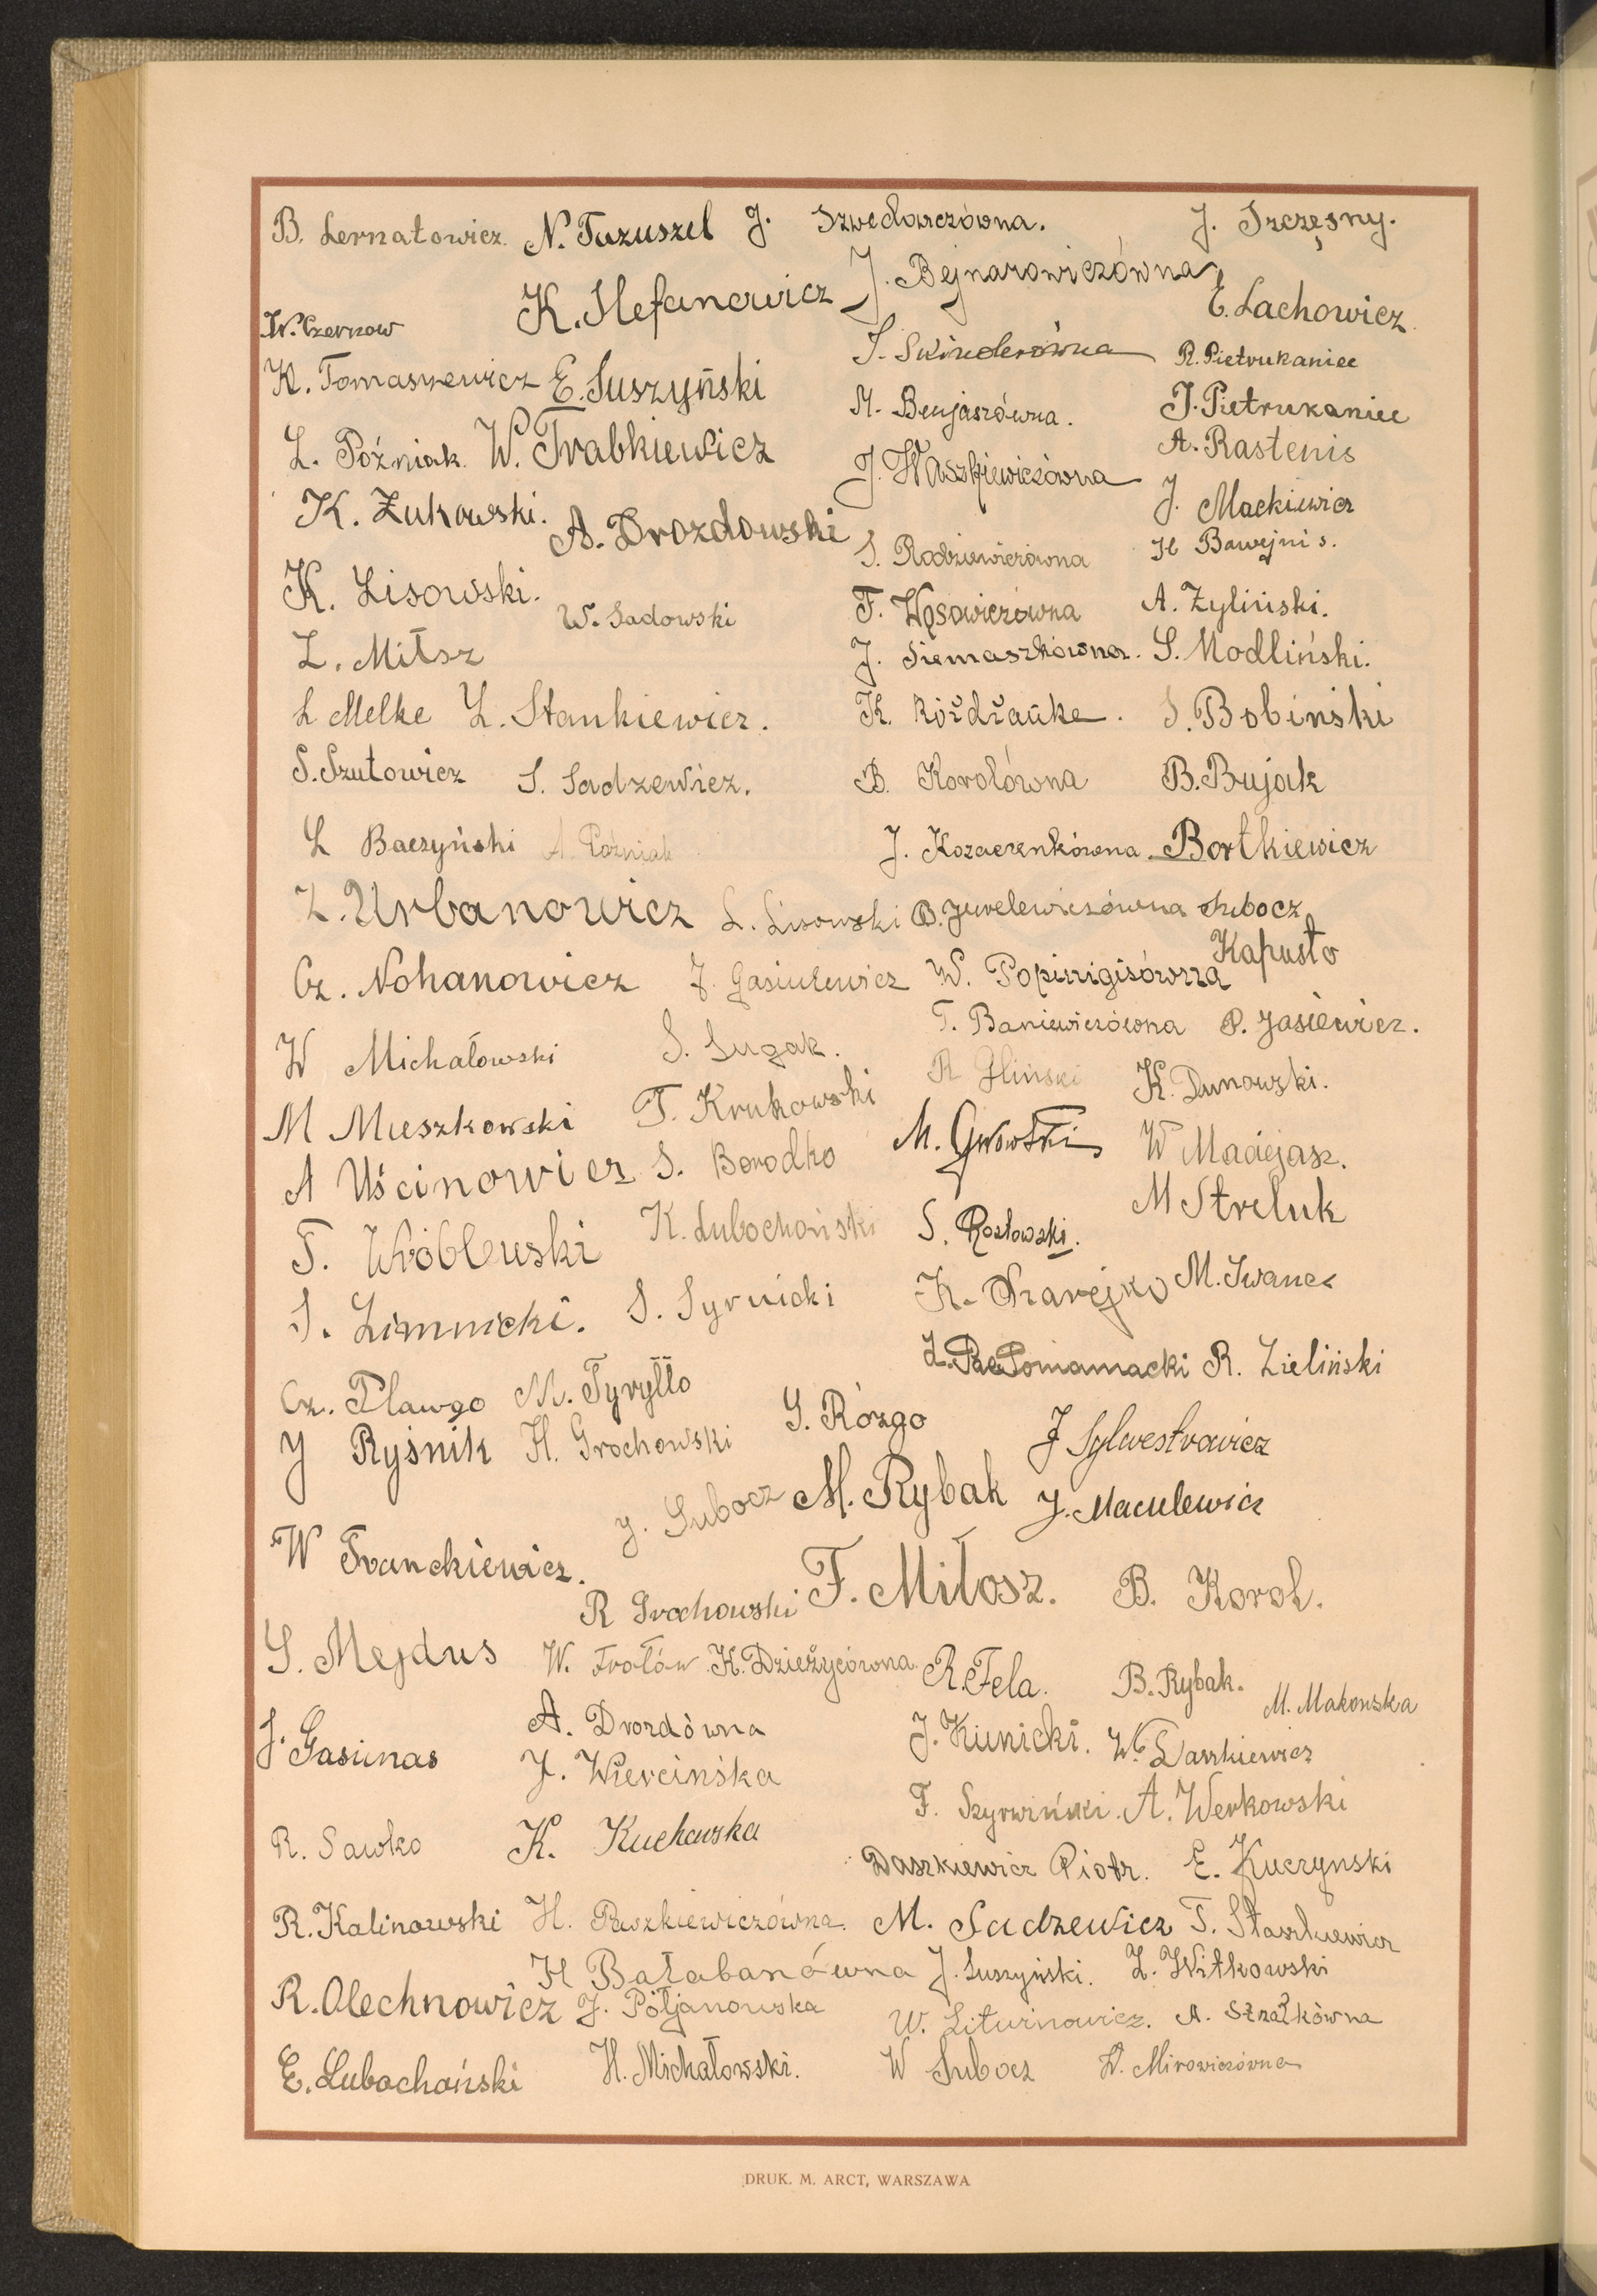 B. Lernatowicz. N. Tuzuszel J. Szwedowczówna. J. Szczęsny.
K. Stefanowicz J. Bejnarowiczówna E. Lachowicz
W. Czernow S. Swinderówna R. Pietrukaniec
K. Tomaszewicz E. Suszyński M. Benjaszówna. J. Pietrukaniec
L. Poźniak. W. Trabkiewicz J. Waszkiewiczówna A. Rastenis
K. Żukowski. A. Drozdowski J. Mackiewicz
S. Rodziewiczówna H Bawejnis.
K. Lisowski. W. Sadowski F. Wąsowiczówna A. Żyliński.
Z. Miłsz J. Siemaszkówna. S. Modliński.
L Melke L. Stankiewicz. K. S. Bobiński
S. Szutowicz S. Sadzewicz. B. Korolówna B. Bujak
L Baczyński A. Poźniak J. Kozaczenkówna Bortkiewicz
Z. Urbanowicz L. Lisowski B. Jurelewiczówna Subocz
Kapusto
Cz. Nohanowicz J. Gasiulewicz W. Popinigisówna
W Michałowski S. Sugak. T. Baniewiczówna P. Jasiewicz.
M Mieszkowski T. Krukowski R Gliński K. Dunowski.
A Uścinowicz S. Borodko M. W Maciejasz.
T. Wróblewski K. Lubochoński S. Kozłowski. M Streluk
S. Zimnicki. S. Syrnicki K. Szarejko M. Iwanec
Cz. Pławgo M. Tyryłło R. Zieliński
J Ryśnik H. Grochowski S. Rózgo J Sylwestrowicz
J. Subocz M. Rybak J. Maculewicz
W Franckiewicz. R Grochowski F. Miłosz. B. Korol.
S. Mejdus W. Frołów K. Dzieżycówna R. Fela. B. Rybak. M. Makowska
J. Gasiunas A. Drozdówna J. Kunicki. W. Daszkiewicz
J. Wiercińska F. Szyrwiński. A. Werkowski
R. Sawko K. Kuchewska Daszkiewicz Piotr. E. Kuczynski
R. Kalinowski H. Paszkiewiczówna. M. Sadzewicz T. Staszkiewicz
H Bałabanówna J. Suszyński. Z. Witkowski
R. Olechnowicz J. Półjanowska W. Liturnowicz. A. Strzałkówna
E. Lubochoński H. Michałowski. W Subocz W. Mirowiczówna
DRUK. M. ARCT, WARSZAWA